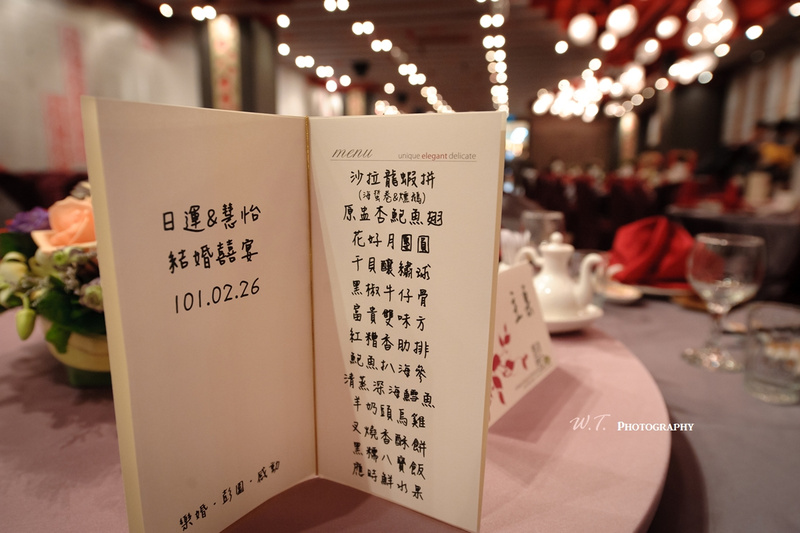 日運&慧怡
結婚囍宴
101.02.26
樂婚·彭園·感動
menu
unique elegant delicate
沙拉龍蝦拼
(海蜇卷&燻鴿)
原盅杏鮑魚翅
花好月團圓
干貝釀繡球
黑椒牛仔骨
富貴雙味方
紅糟香肋排
鮑魚扒海參
清蒸深海鱈魚
羊奶頭烏雞
叉燒香酥餅
黑糯八寶飯
應時鮮水果
W.T. PHOTOGRAPHY